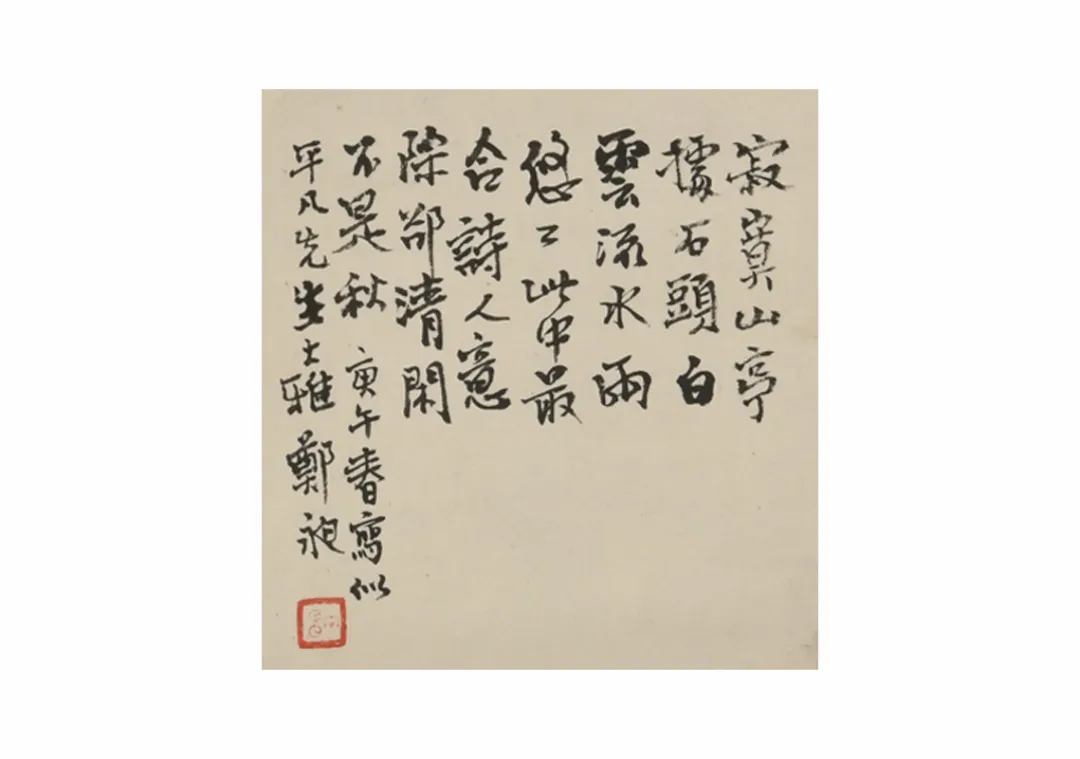 寂寞山亭
據石頭白
雲流水兩
悠〻此中最
合詩人意
除卻清閑
不是秋 庚午春寫似
平凡先生大雅 鄭昶